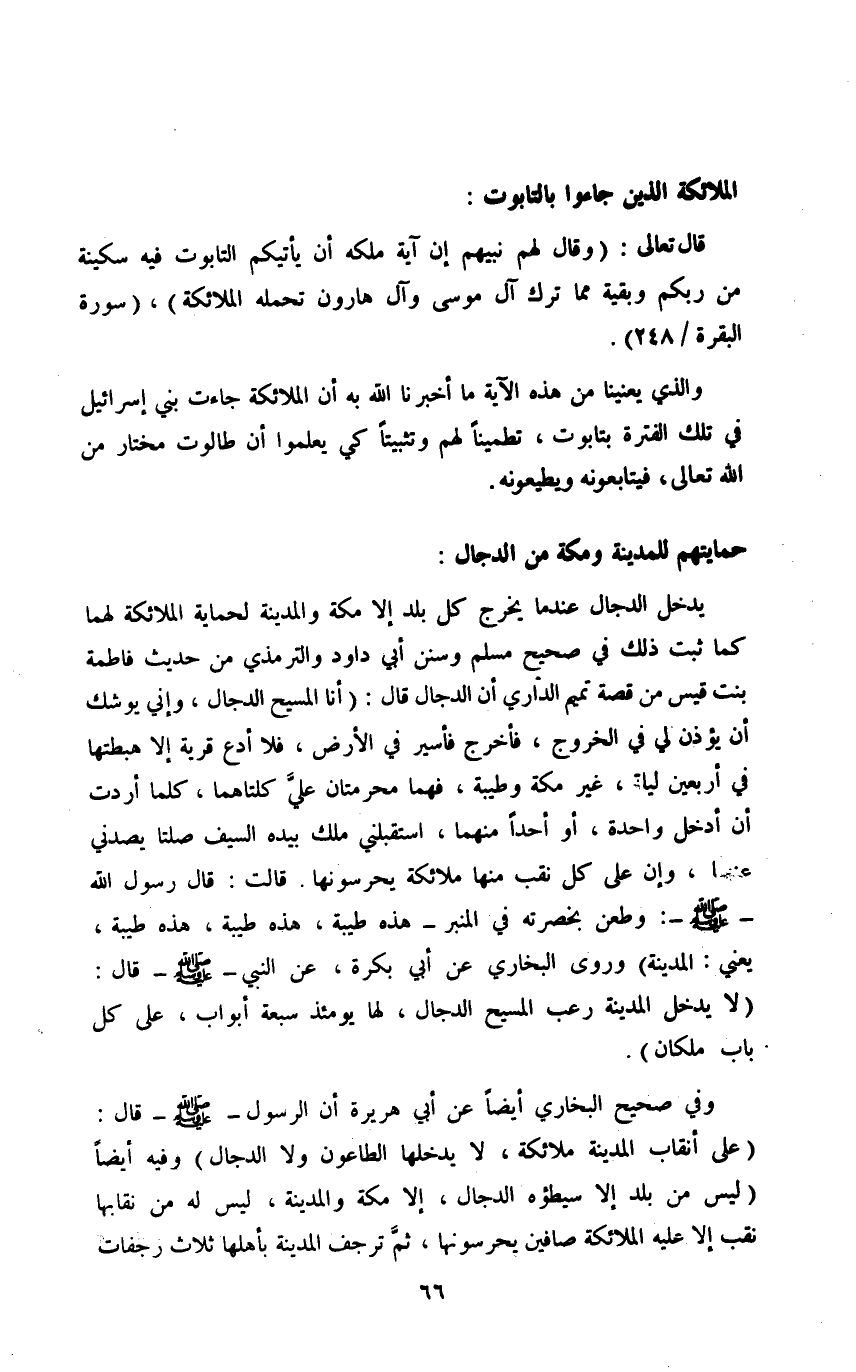 الملائكة الذين جاءوا بالتابوت :
قال تعالى : ( وقال لهم نبيهم إن آية ملكه أن يأتيكم التابوت فيه سكينة
من ربكم وبقية مما ترك آل موسى وآل هارون تحمله الملائكة ) ، ( سورة
البقرة / ٢٤٨) .
والذي يعنينا من هذه الآية ما أخبرنا الله به أن الملائكة جاءت بني إسرائيل
في تلك الفترة بتابوت ، تطميناً لهم وتثبيتاً كي يعلموا أن طالوت مختار من
الله تعالى ، فيتابعونه ويطيعونه .
حمايتهم للمدينة ومكة من الدجال :
يدخل الدجال عندما يخرج كل بلد إلا مكة والمدينة لحماية الملائكة لهما
كما ثبت ذلك في صحيح مسلم وسنن أبي داود والترمذي من حديث فاطمة
بنت قيس من قصة تميم الداري أن الدجال قال : ( أنا المسيح الدجال ، وإني يوشك
أن يؤذن لي في الخروج ، فأخرج فأسير في الأرض ، فلا أدع قرية إلا هبطتها
في أربعين ليلة ، غير مكة وطيبة ، فهما محرمتان عليَّ كلتاهما ، كلما أردت
أن أدخل واحدة ، أو أحداً منهما ، استقبلني ملك بيده السيف صلتا يصدني
عنها ، وإن على كل نقب منها ملائكة يحرسونها . قالت : قال رسول الله
- ﷺ -: وطعن بخصرته في المنبر - هذه طيبة ، هذه طيبة ، هذه طيبة ،
يعني : المدينة) وروى البخاري عن أبي بكرة ، عن النبي - ﷺ - قال :
( لا يدخل المدينة رعب المسيح الدجال ، لها يومئذ سبعة أبواب ، على كل
باب ملكان ) .
وفي صحيح البخاري أيضاً عن أبي هريرة أن الرسول - ﷺ - قال :
( على أنقاب المدينة ملائكة ، لا يدخلها الطاعون ولا الدجال ) وفيه أيضاً
( ليس من بلد إلا سيطؤه الدجال ، إلا مكة والمدينة ، ليس له من نقابها
نقب إلا عليه الملائكة صافين يحرسونها ، ثمَّ ترجف المدينة بأهلها ثلاث رجفات
٦٦